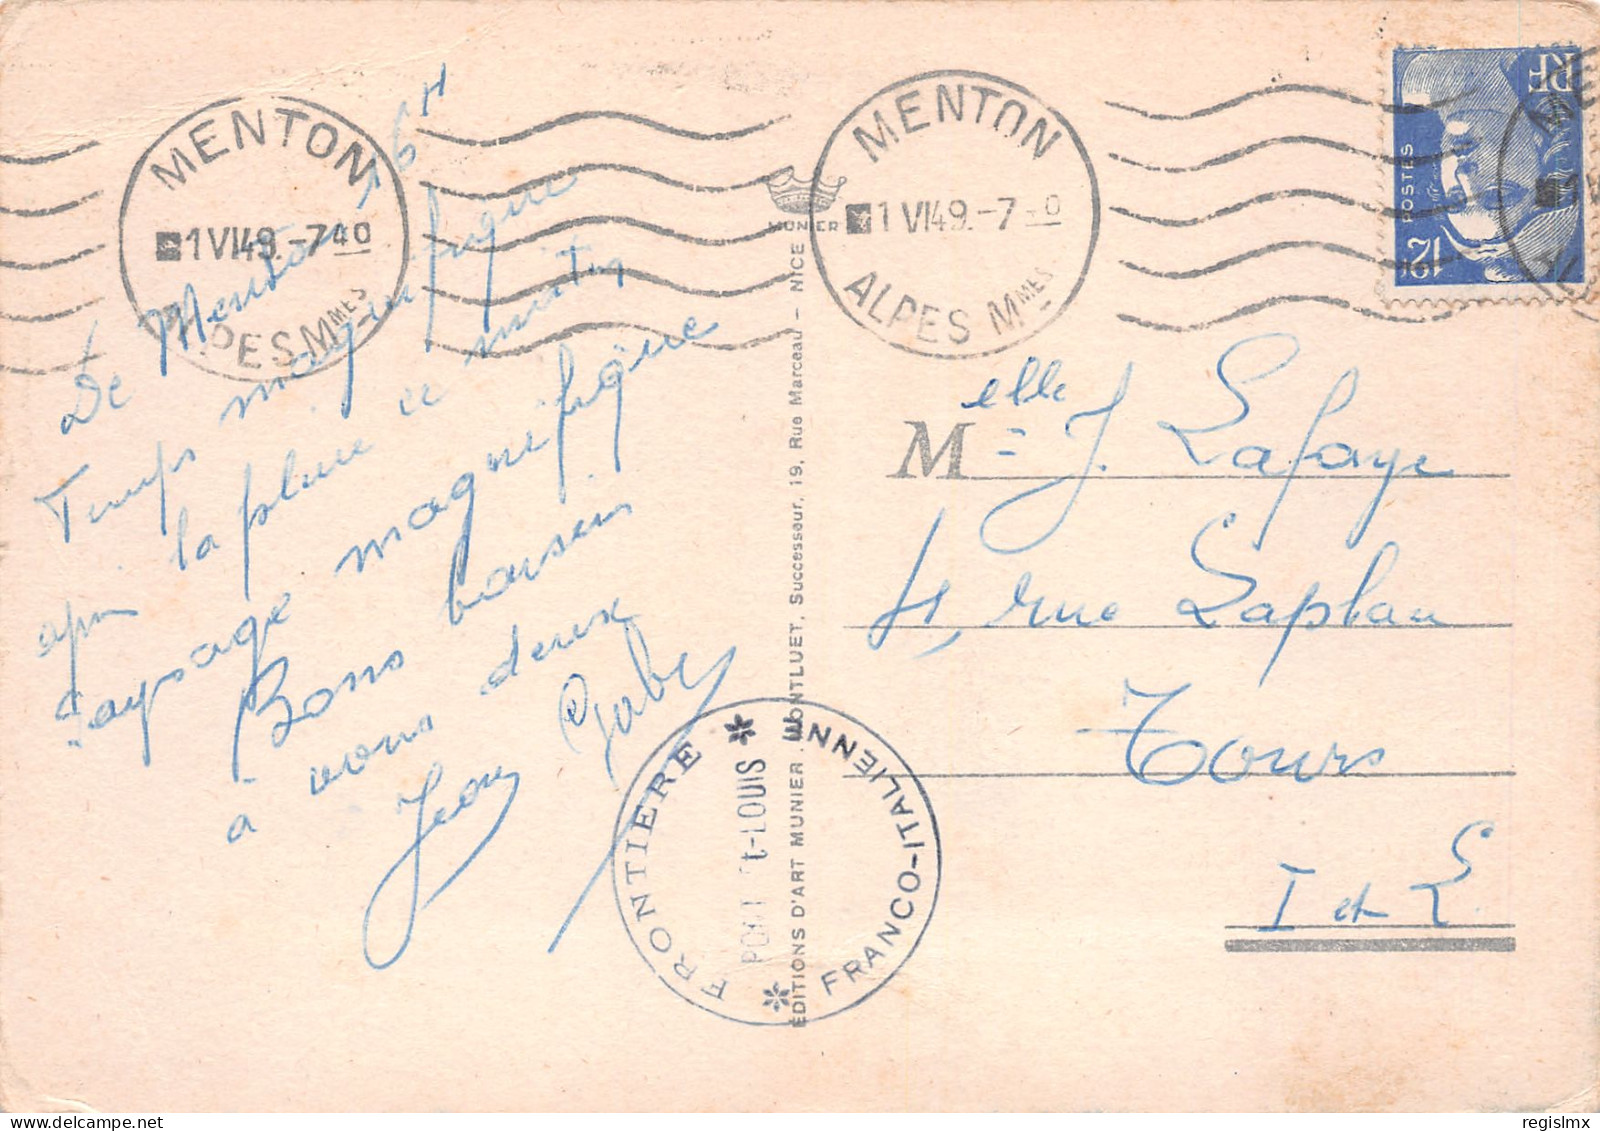 MENTON
1 VI 49.-7 40
ALPES Mmes
De Menton 16H
Temps magnifique
après la pluie ce matin
Paysage magnifique
Bons baisers
à vous deux
Jean Gaby
MUNIER
ÉDITIONS D'ART MUNIER. MONTLUET, Successeur, 19, Rue Marceau - NICE
FRONTIERE * FRANCO-ITALIENNE *
PONT St-LOUIS
MENTON
1 VI 49.-7
ALPES Mmes
RF
POSTES
12F
Melle J. Lafaye
41, rue Laplau
Tours
I et L.
regislmx